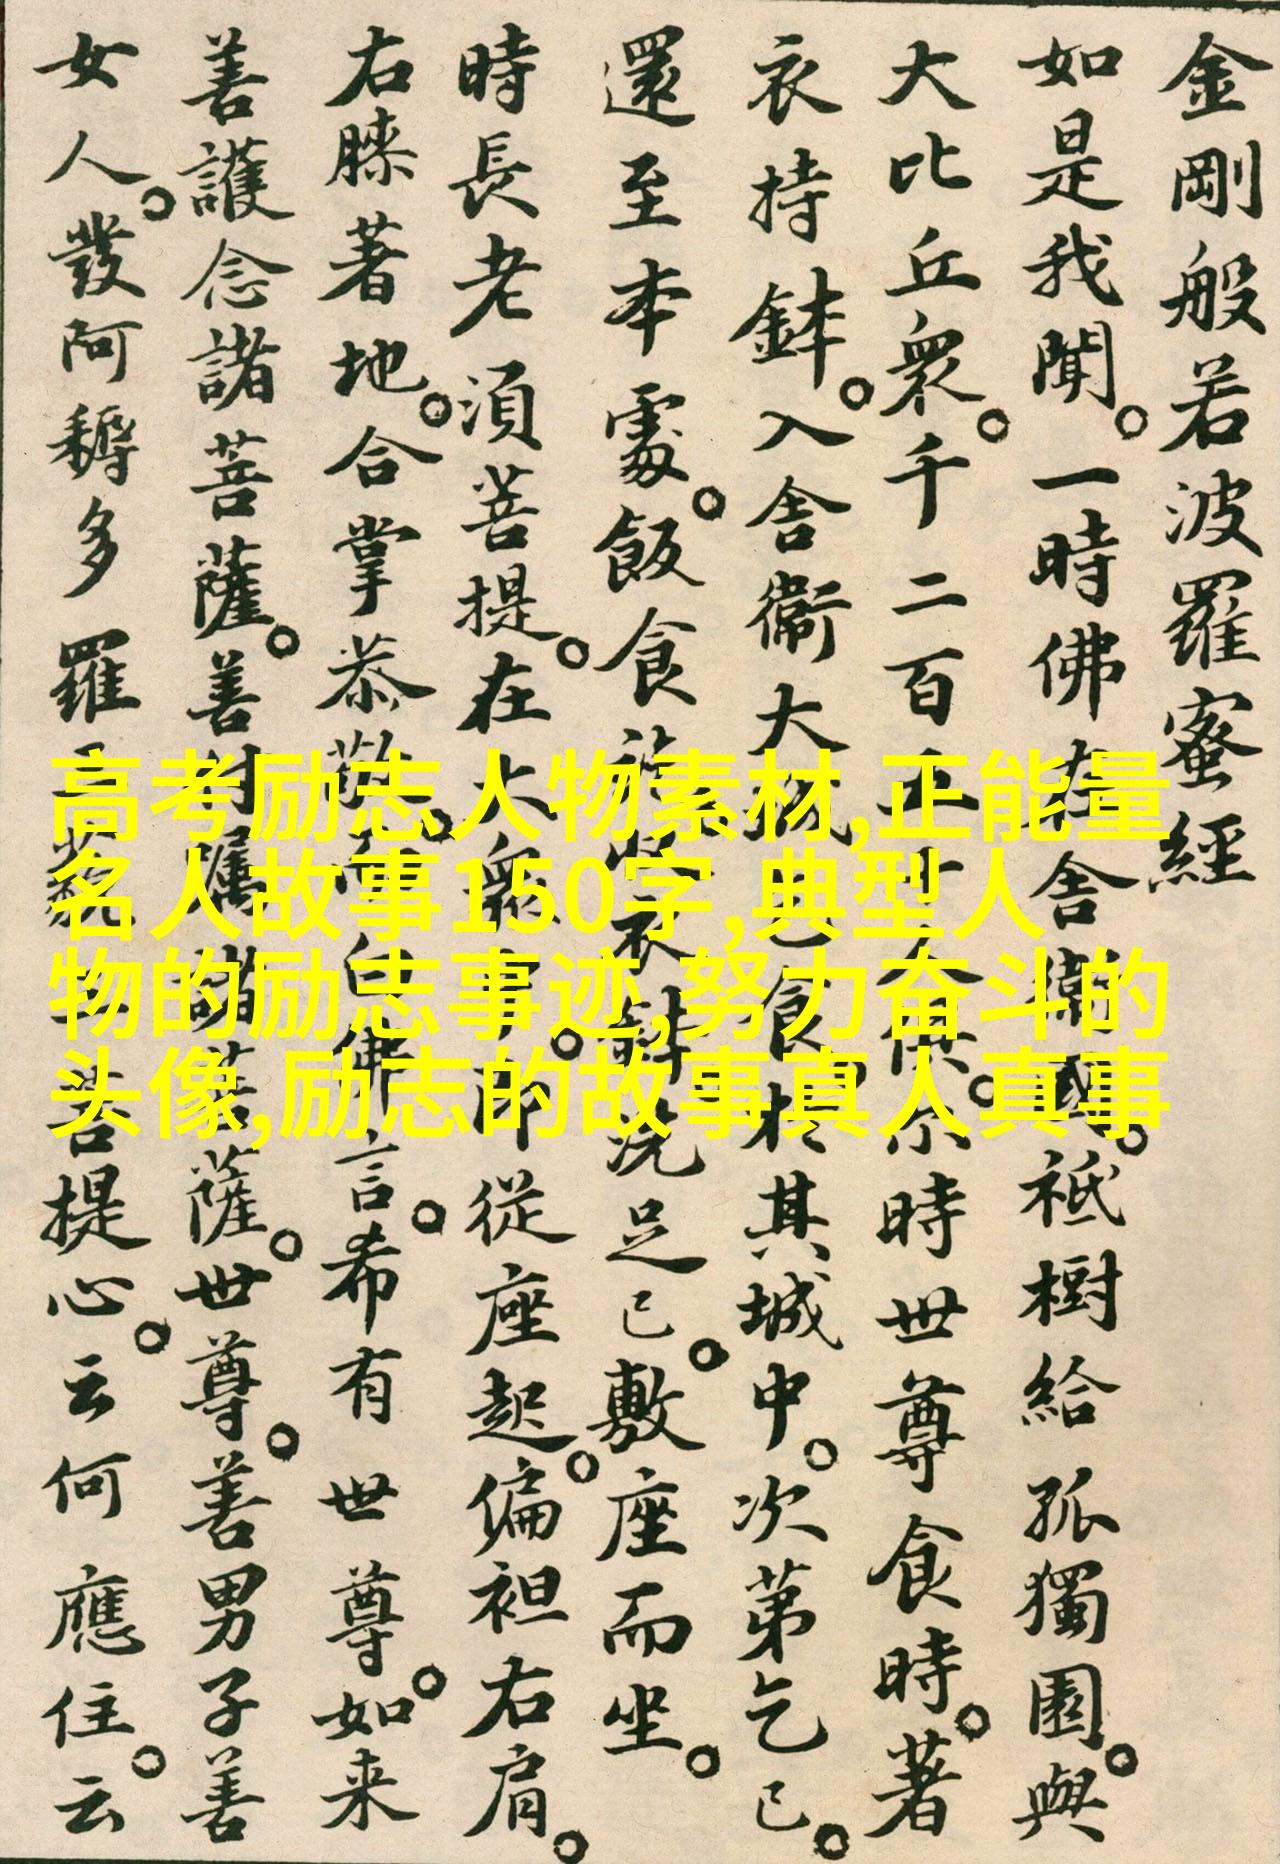 金剛般若波羅蜜經
如是我聞。一時佛在舍衛國。祇樹給孤獨園。與
大比丘衆。千二百五十人俱。尒時世尊食時。著
衣持鉢。入舍衛大城乞食於其城中。次第乞已。
還至本處。飯食訖收衣鉢洗足已。敷座而坐。
時長老須菩提。在大衆中。即從座起。偏袒右肩。
右膝著地。合掌恭敬。而白佛言。希有世尊。如来
善護念諸菩薩。善付囑諸菩薩。世尊。善男子善
女人。發阿耨多羅三藐三菩提心。云何應住。云
高考励志人物素材,正能量
名人故事150字,典型人
物的励志事迹,努力奋斗的
头像,励志的故事真人真事